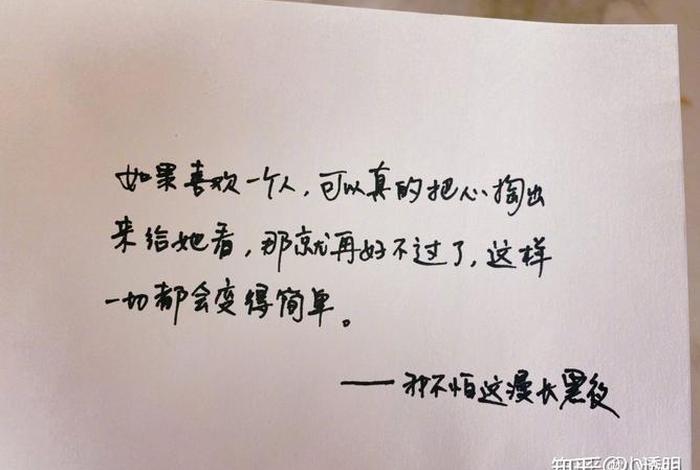 如果喜欢一个人，可以真的把心掏出
来给她看，那就再好不过了，这样
一切都会变得简单。
——我不怕这漫长黑夜
知乎 @小透明